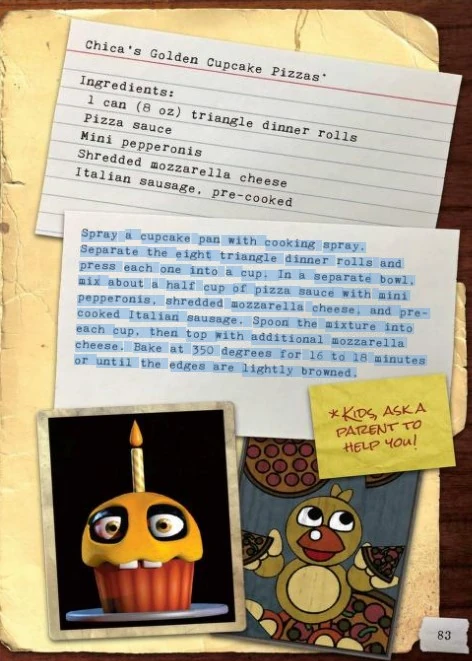 Chica's Golden Cupcake Pizzas*
Ingredients:
1 can (8 oz) triangle dinner rolls
Pizza sauce
Mini pepperonis
Shredded mozzarella cheese
Italian sausage, pre-cooked
Spray a cupcake pan with cooking spray.
Separate the eight triangle dinner rolls and
press each one into a cup. In a separate bowl,
mix about a half cup of pizza sauce with mini
pepperonis, shredded mozzarella cheese, and pre-
cooked Italian sausage. Spoon the mixture into
each cup, then top with additional mozzarella
cheese. Bake at 350 degrees for 16 to 18 minutes
or until the edges are lightly browned.
*KIDS, ASK A
PARENT TO
HELP YOU!
83